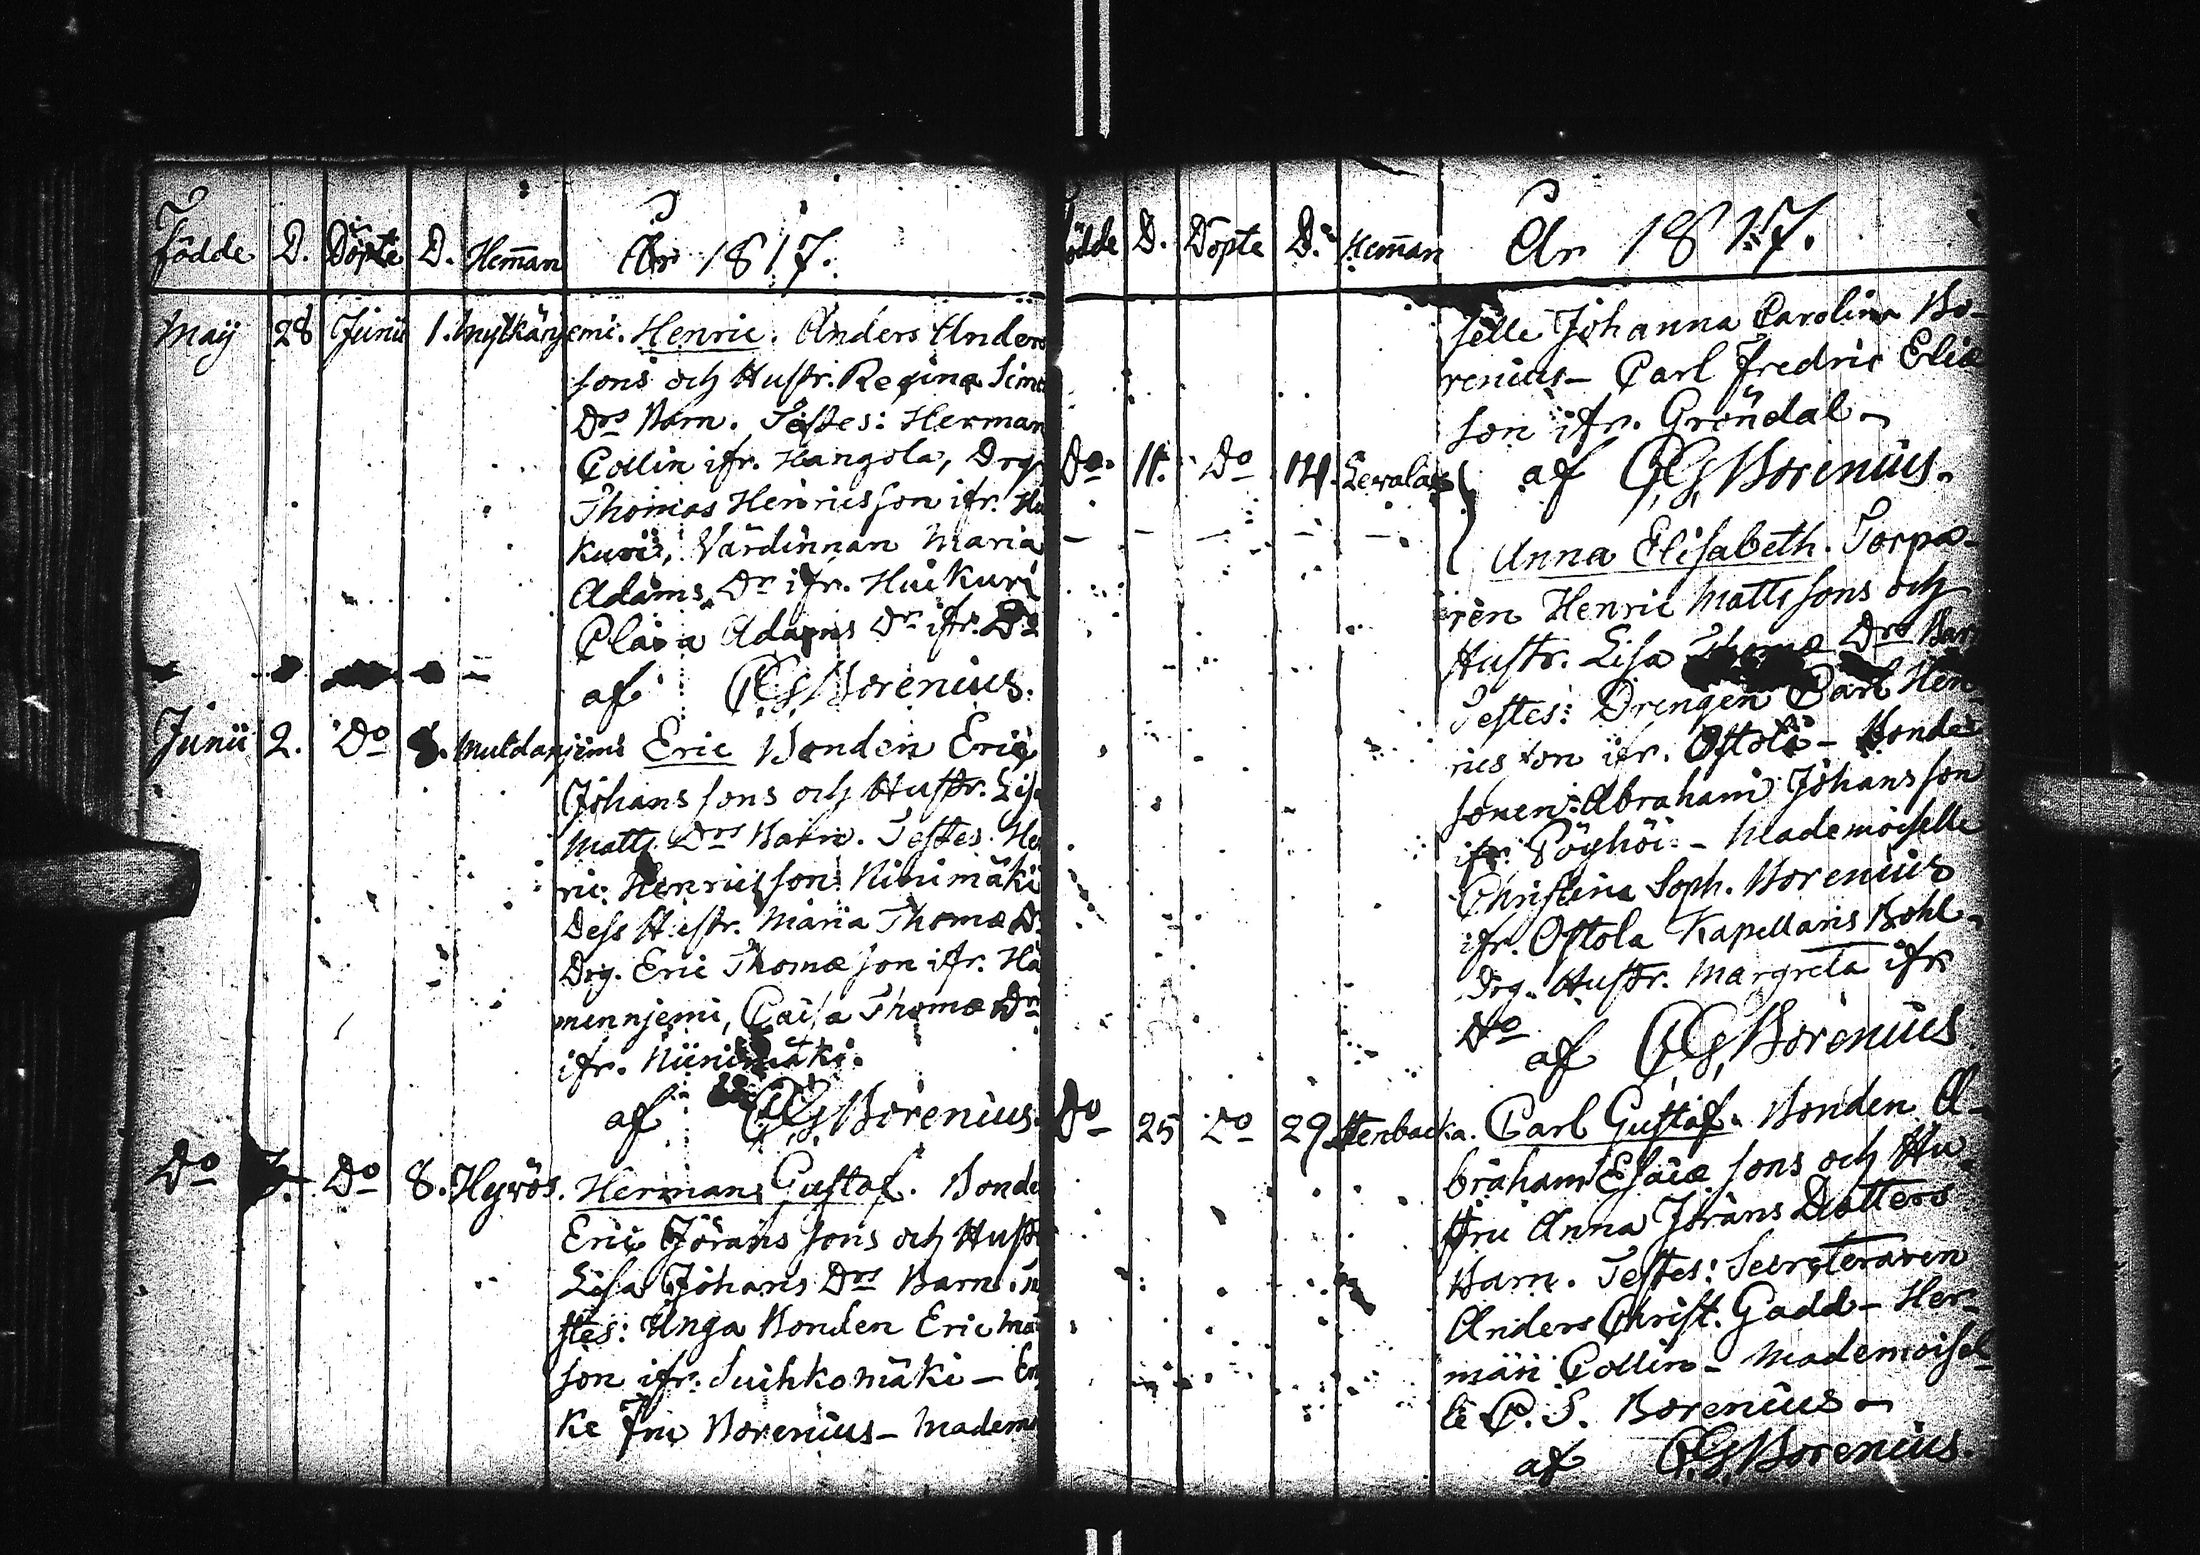 Födde D. Döpte D. Hem̄an År 1817.
Maij 28 Junii 1. Mylkärjemi. Henric. Anders Anders
sons och Hustr. Regina Sime
Drs Barn. Testes: Herman
Collin ifr. Hangola, Drg
Thomas Henricsson ifr. Hu
kuri, Värdinnan Maria
Adams Dr ifr. Huikuri
Adams Dr ifr. Do
af CG Borenius.
Junii 2. Do 8. Muldanjemi Eric Bonden Eric
Johans sons och Hustr. Lisa
Matts Drs Barn. Testes Hen
ric Henricsson Niinimäki
Dess Hustr. Maria Thomæ D.
Drg. Eric Thomæ son ifr. Ha
minnjemi, Caisa Thomæ Dr
ifr. Niinimäki.
af CG Borenius.
Do Do 8. Hyrös. Herman Gustaf. Bonde
Eric Jörans sons och Hustr
Lisa Johans Drs Barn. Te
stes: Unga Bonden Eric Mat
son ifr. Suihkomäki – En
ke Fru Borenius – Madem
Födde D. Döpte D. Hem̄an År 1817.
selle Johanna Carolina Bo-
renius – Carl Fredric Eliæ
son ifr. Gröndal –
af CG Borenius.
Do 11. Do 14. Anna Elisabeth. Torpa-
ren Henric Matts sons och
Hustr. Lisa Thomæ Drs Barn
Testes: Drengen Carl Hen-
ricsson ifr. Ostola – Bonde
sonen Abraham Johansson
ifr. Pöyhöi – Mademoiselle
Christina Soph. Borenius
ifr. Ostola Kapellans Bohl.
Drg. Hustr. Margreta ifr
Do
af CG Borenius
Do 25 Do 29 Stenbacka. Carl Gustaf. Bonden A-
braham Esaiæ sons och Hu
stru Anna Jörans Dotters
Barn. Testes: Secreteraren
Anders Christ. Gadd – Her-
man Collin – Mademoisel
le C. S. Borenius –
af CG Borenius.